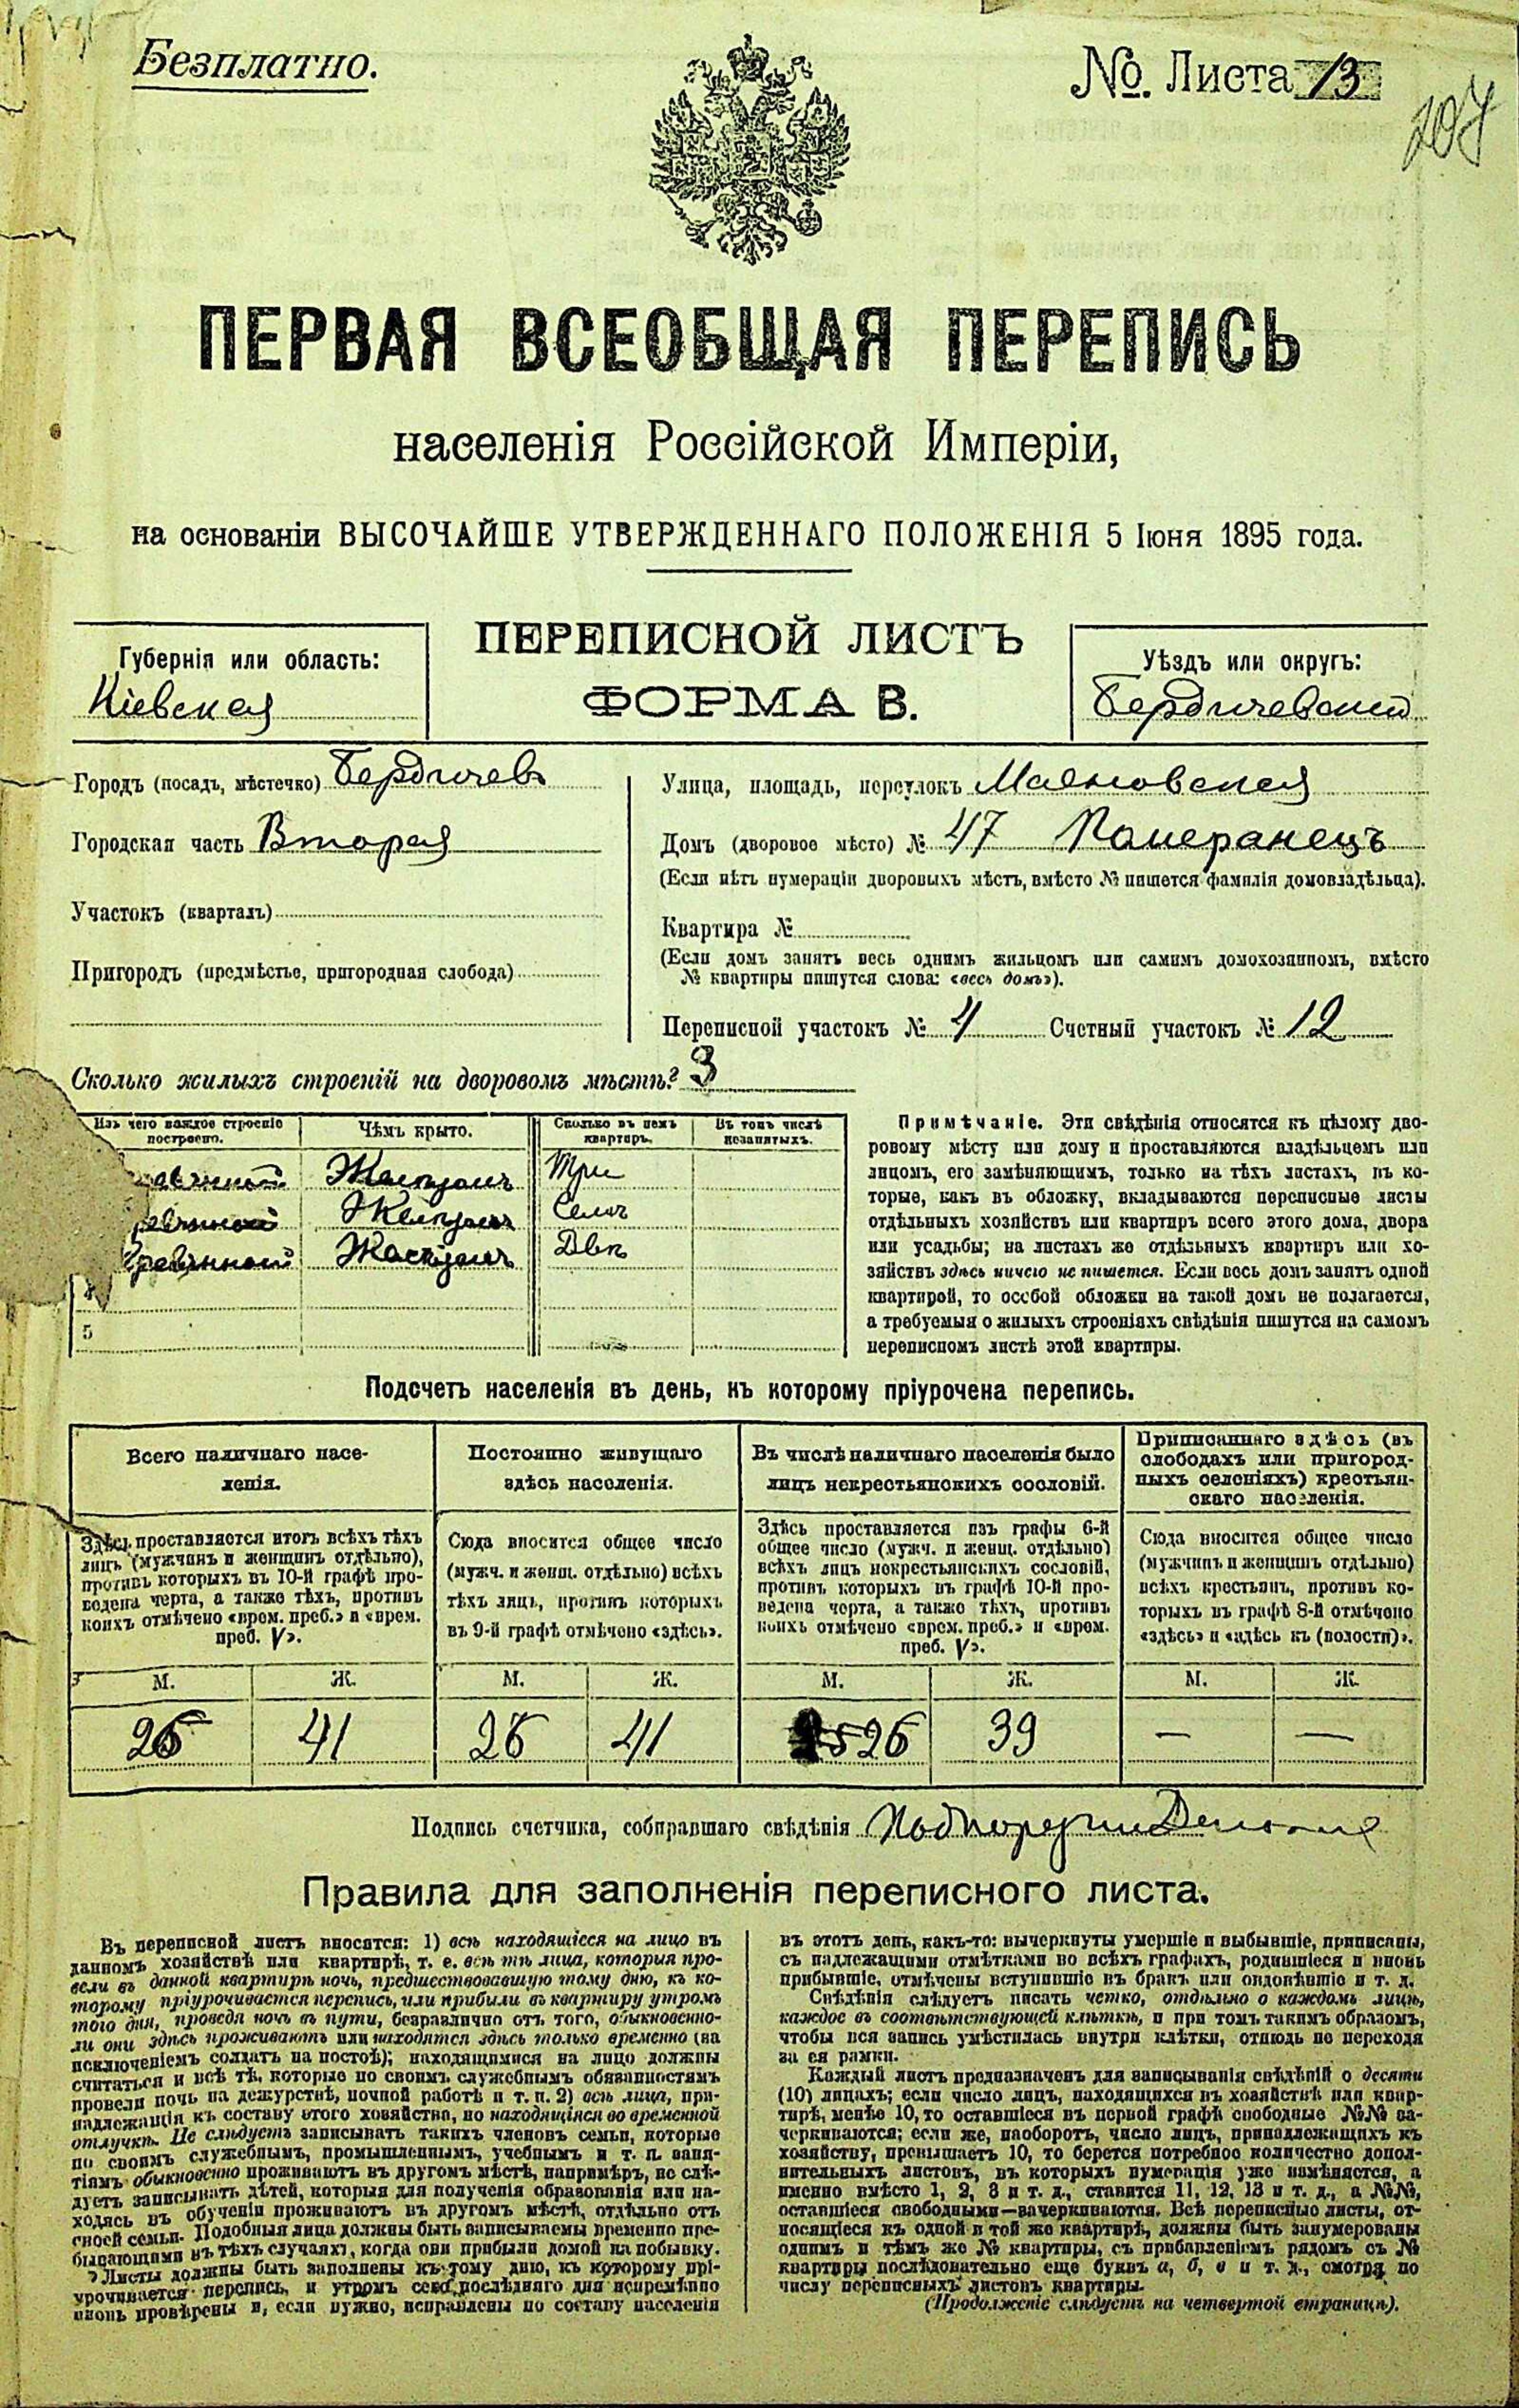 Безплатно.
№. Листа 13
207
ПЕРВАЯ ВСЕОБЩАЯ ПЕРЕПИСЬ
населенія Россійской Имперіи,
на основаніи ВЫСОЧАЙШЕ УТВЕРЖДЕННАГО ПОЛОЖЕНІЯ 5 Іюня 1895 года.
ПЕРЕПИСНОЙ ЛИСТЪ
ФОРМА В.
Губернія или область:
Кіевская
Уѣздъ или округъ:
Бердичевскій
Городъ (посадъ, мѣстечко) Бердичевъ
Городская часть Вторая
Участокъ (кварталъ)
Пригородъ (предмѣстье, пригородная слобода)
Улица, площадь, переулокъ
Домъ (дворовое мѣсто) № 47 Померанецъ
(Если нѣтъ нумераціи дворовыхъ мѣстъ, вмѣсто № пишется фамилія домовладѣльца).
Квартира №
(Если домъ занятъ весь однимъ жильцомъ или самимъ домохозяиномъ, вмѣсто
№ квартиры пишутся слова: «весь домъ»).
Переписной участокъ № 4 Счетный участокъ № 12
Сколько жилыхъ строеній на дворовомъ мѣстѣ? 3
Изъ чего каждое строеніе построено.
Чѣмъ крыто.
Сколько въ немъ квартиръ.
Въ томъ числѣ незанятыхъ.
Желѣзомъ Три
Желѣзомъ Семь
Желѣзомъ Двѣ
4
5
Примѣчаніе. Эти свѣдѣнія относятся къ цѣлому дво-
ровому мѣсту или дому и проставляются владѣльцемъ или
лицомъ, его замѣняющимъ, только на тѣхъ листахъ, въ ко-
торые, какъ въ обложку, вкладываются переписные листы
отдѣльныхъ хозяйствъ или квартиръ всего этого дома, двора
или усадьбы; на листахъ же отдѣльныхъ квартиръ или хо-
зяйствъ здѣсь ничего не пишется. Если весь домъ занятъ одной
квартирой, то особой обложки на такой домъ не полагается,
а требуемыя о жилыхъ строеніяхъ свѣдѣнія пишутся на самомъ
переписномъ листѣ этой квартиры.
Подсчетъ населенія въ день, къ которому пріурочена перепись.
Всего наличнаго насе-
ленія.
Постоянно живущаго
здѣсь населенія.
Въ числѣ наличнаго населенія было
лицъ некрестьянскихъ сословій.
Приписаннаго здѣсь (въ
слободахъ или пригород-
ныхъ селеніяхъ) крестьян-
скаго населенія.
Здѣсь проставляется итогъ всѣхъ тѣхъ
лицъ (мужчинъ и женщинъ отдѣльно),
противъ которыхъ въ 10-й графѣ про-
ведена черта, а также тѣхъ, противъ
коихъ отмѣчено «врем. преб.» и «врем.
преб. V».
Сюда вносится общее число
(мужч. и женщ. отдѣльно) всѣхъ
тѣхъ лицъ, противъ которыхъ
въ 9-й графѣ отмѣчено «здѣсь».
Здѣсь проставляется изъ графы 6-й
общее число (мужч. и женщ. отдѣльно)
всѣхъ лицъ некрестьянскихъ сословій,
противъ которыхъ въ графѣ 10-й про-
ведена черта, а также тѣхъ, противъ
коихъ отмѣчено «врем. преб.» и «врем.
преб. V».
Сюда вносится общее число
(мужчинъ и женщинъ отдѣльно)
всѣхъ крестьянъ, противъ ко-
торыхъ въ графѣ 8-й отмѣчено
«здѣсь» и «здѣсь къ (волости)».
М. Ж. М. Ж. М. Ж. М. Ж.
26 41 26 41 26 39 — —
Подпись счетчика, собиравшаго свѣдѣнія
Правила для заполненія переписного листа.
Въ переписной листъ вносятся: 1) всѣ находящіеся на лицо въ
данномъ хозяйствѣ или квартирѣ, т. е. всѣ тѣ лица, которыя про-
вели въ данной квартирѣ ночь, предшествовавшую тому дню, къ ко-
торому пріурочивается перепись, или прибыли въ квартиру утромъ
того дня, проведя ночь въ пути, безразлично отъ того, обыкновенно-
ли они здѣсь проживаютъ или находятся здѣсь только временно (за
исключеніемъ солдатъ на постоѣ); находящимися на лицо должны
считаться и всѣ тѣ, которые по своимъ служебнымъ обязанностямъ
провели ночь на дежурствѣ, ночной работѣ и т. п. 2) всѣ лица, при-
надлежащія къ составу этого хозяйства, но находящіяся во временной
отлучкѣ. Не слѣдуетъ записывать такихъ членовъ семьи, которые
по своимъ служебнымъ, промышленнымъ, учебнымъ и т. п. заня-
тіямъ обыкновенно проживаютъ въ другомъ мѣстѣ, напримѣръ, не слѣ-
дуетъ записывать дѣтей, которыя для полученія образованія или на-
ходясь въ обученіи проживаютъ въ другомъ мѣстѣ, отдѣльно отъ
своей семьи. Подобныя лица должны быть записываемы временно пре-
бывающими въ тѣхъ случаяхъ, когда они прибыли домой на побывку.
Листы должны быть заполнены къ тому дню, къ которому прі-
урочивается перепись, и утромъ сего послѣдняго дня непремѣнно
вновь провѣрены и, если нужно, исправлены по составу населенія
въ этотъ день, какъ-то: вычеркнуты умершіе и выбывшіе, приписаны,
съ надлежащими отмѣтками во всѣхъ графахъ, родившіеся и вновь
прибывшіе, отмѣчены вступившіе въ бракъ или овдовѣвшіе и т. д.
Свѣдѣнія слѣдуетъ писать четко, отдѣльно о каждомъ лицѣ,
каждое въ соотвѣтствующей клѣткѣ, и при томъ такимъ образомъ,
чтобы вся запись умѣстилась внутри клѣтки, отнюдь не переходя
за ея рамки.
Каждый листъ предназначенъ для записыванія свѣдѣній о десяти
(10) лицахъ; если число лицъ, находящихся въ хозяйствѣ или квар-
тирѣ, менѣе 10, то оставшіеся въ первой графѣ свободные №№ за-
черкиваются; если же, наоборотъ, число лицъ, принадлежащихъ къ
хозяйству, превышаетъ 10, то берется потребное количество допол-
нительныхъ листовъ, въ которыхъ нумерація уже измѣняется, а
именно вмѣсто 1, 2, 3 и т. д., ставится 11, 12, 13 и т. д., а №№,
оставшіеся свободными—зачеркиваются. Всѣ переписные листы, от-
носящіеся къ одной и той же квартирѣ, должны быть занумерованы
однимъ и тѣмъ же № квартиры, съ прибавленіемъ рядомъ съ №
квартиры послѣдовательно еще буквъ а, б, в и т. д., смотря по
числу переписныхъ листовъ квартиры.
(Продолженіе слѣдуетъ на четвертой страницѣ).